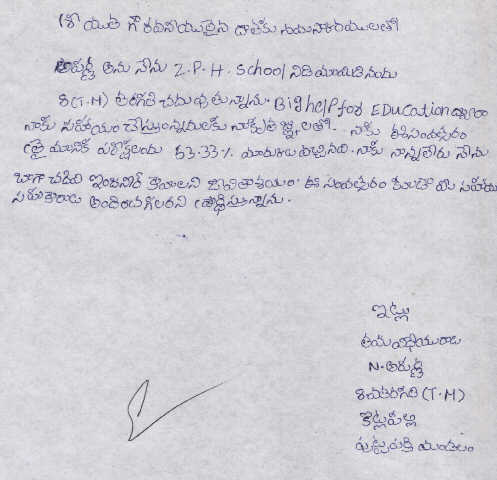 శ్రీయుత గౌరవనీయులైన దాతకు నమస్కారములతో
అపర్ణ అను నేను Z.P.H. School నిడిమామిడి నందు
8(T.M) తరగతి చదువుతున్నాను. Bighelp for EDucation ద్వారా
నాకు సహాయం చేస్తున్నందులకు నా కృతజ్ఞలతో. నాకు ఈ సంవత్సరం
త్రై మాసిక పరీక్షలందు 53.33% మార్కులు వచ్చినవి. నాకు నాన్న లేరు నేను
బాగా చదివి ఇంజనీర్ కావాలని జీవితాశయం. ఈ సంవత్సరం కూడా మీ సహాయ
సహకారాలు అందించగలరని ప్రార్థిస్తున్నాను.
ఇట్లు
తమ విధేయురాలు
N. అపర్ణ
8వ తరగతి (T.M)
పుట్టపర్తి మండలం